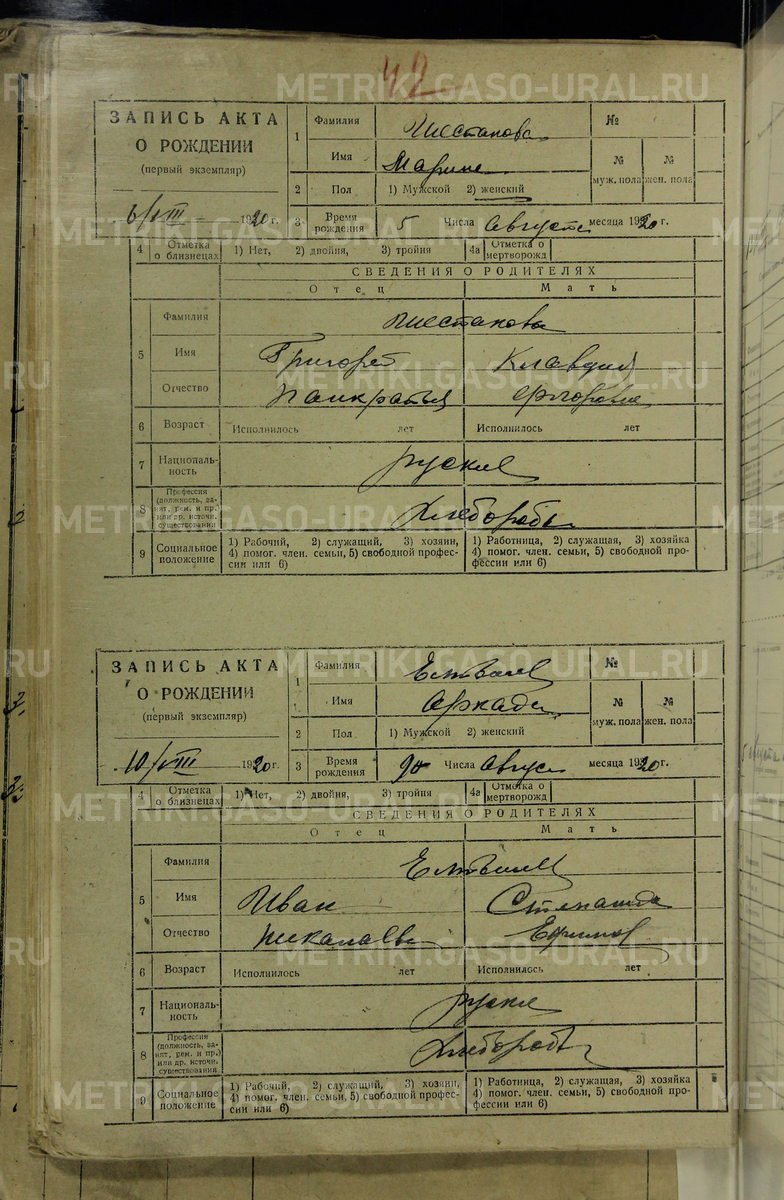 42
ЗАПИСЬ АКТА
О РОЖДЕНИИ
(первый экземпляр)
6/VIII 1920 г.
1 Фамилия Шестакова №
Имя Марине № муж. пола № жен. пола
2 Пол 1) Мужской 2) женский
3 Время рождения 5 Числа Августа месяца 1920 г.
4 Отметка о близнецах 1) Нет, 2) двойня, 3) тройня 4а Отметка о мертворожд
СВЕДЕНИЯ О РОДИТЕЛЯХ
Отец Мать
5 Фамилия Шестакова
Имя Григорей Клавдия
Отчество Панкратья
6 Возраст Исполнилось лет Исполнилось лет
7 Националь-
ность руские
8 Профессия
(должность, за-
нят, рем. и пр.)
или др. источн.
существования Хлеборобы
9 Социальное
положение
1) Рабочий, 2) служащий, 3) хозяин,
4) помог. член. семьи, 5) свободной профес-
сии или 6)
1) Работница, 2) служащая, 3) хозяйка
4) помог. член. семьи, 5) свободной про-
фессии или 6)
ЗАПИСЬ АКТА
О РОЖДЕНИИ
(первый экземпляр)
10/VIII 1920 г.
1 Фамилия №
Имя Аркади № муж. пола № жен. пола
2 Пол 1) Мужской 2) женский
3 Время рождения Числа Август месяца 1920 г.
4 Отметка о близнецах 1) Нет, 2) двойня, 3) тройня 4а Отметка о мертворожд
СВЕДЕНИЯ О РОДИТЕЛЯХ
Отец Мать
5 Фамилия
Имя Иван
Отчество Ефимов
6 Возраст Исполнилось лет Исполнилось лет
7 Националь-
ность руские
8 Профессия
(должность, за-
нят, рем. и пр.)
или др. источн.
существования Хлеборобы
9 Социальное
положение
1) Рабочий, 2) служащий, 3) хозяин,
4) помог. член. семьи, 5) свободной профес-
сии или 6)
1) Работница, 2) служащая, 3) хозяйка
4) помог. член. семьи, 5) свободной про-
фессии или 6)
METRIKI.GASO-URAL.RU